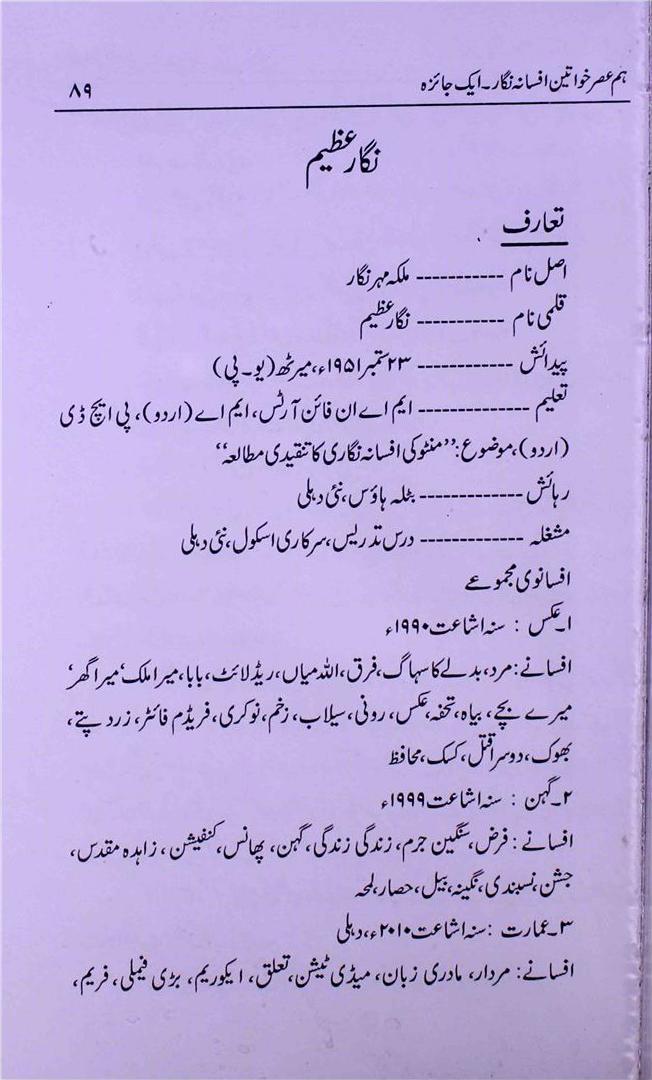 ہم عصر خواتین افسانہ نگار۔ ایک جائزہ ۸۹
نگار عظیم
تعارف
اصل نام ----------- ملکہ مہر نگار
قلمی نام ----------- نگار عظیم
پیدائش ------------ ۲۳ ستمبر ۱۹۵۱ء، میرٹھ (یو۔پی)
تعلیم -------------- ایم اے ان فائن آرٹس، ایم اے (اردو)، پی ایچ ڈی
(اردو)، موضوع: ’’منٹو کی افسانہ نگاری کا تنقیدی مطالعہ‘‘
رہائش ------------- بٹلہ ہاؤس، نئی دہلی
مشغلہ ------------- درس تدریس، سرکاری اسکول، نئی دہلی
افسانوی مجموعے
۱۔ عکس : سنہ اشاعت ۱۹۹۰ء
افسانے: مرد، بدلے کا سہاگ، فرق، اللہ میاں، ریڈ لائٹ، بابا، میرا ملک‘ میرا گھر‘
میرے بچے، بیاہ، تحفہ، عکس، رونی، سیلاب، زخم، نوکری، فریڈم فائٹر، زرد پتے،
بھوک، دوسرا قتل، کسک، محافظ
۲۔ گہن : سنہ اشاعت ۱۹۹۹ء
افسانے: فرض، سنگین جرم، زندگی زندگی، گہن، پھانس، کنفیشن، زاہدہ مقدس،
جشن، نسبندی، نگینہ، بیل، حصار، لمحہ
۳۔ عمارت : سنہ اشاعت ۲۰۱۰ء، دہلی
افسانے: مردار، مادری زبان، میڈی ٹیشن، تعلق، ایکوریم، بڑی فیملی، فریم،